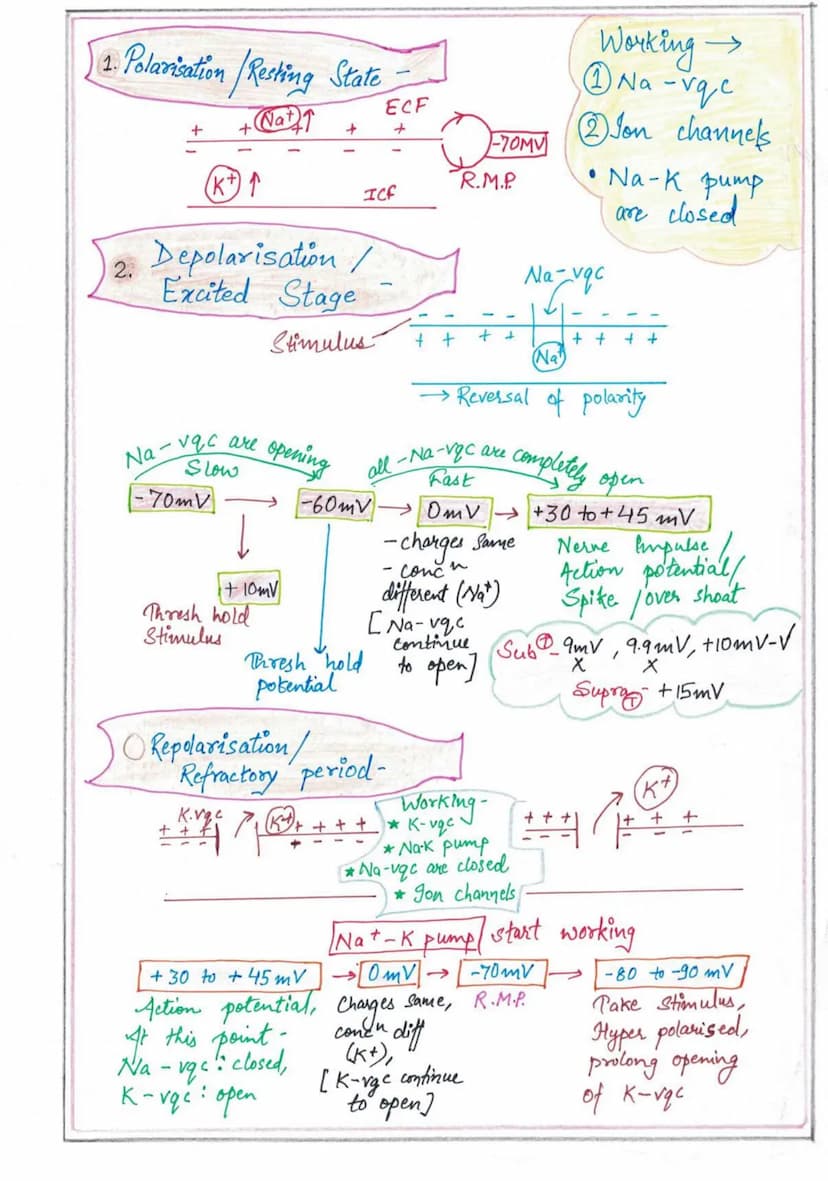 1. Polarisation / Resting State -
Working →
① Na - vgc
② Ion channels
• Na-K pump
are closed
Na+ ↑ ECF
+ + + + +
- - - - -
-70MV
R.M.P.
K+ ↑ ICF
2. Depolarisation /
Excited Stage -
Na-vgc
Stimulus
- - - - - - - -
+ + + + + + + +
Na+
→ Reversal of polarity
Na-vgc are opening
Slow
all -Na-vgc are completely open
Fast
-70mV → -60mV → 0mV → +30 to +45 mV
+10mV
Thresh hold
Stimulus
Thresh hold
potential
- charges same
- concn
different (Na+)
[Na-vgc
continue
to open]
Nerve Impulse /
Action potential /
Spike / over shoat
Sub T - 9mV, 9.9mV, +10mV-V
X X
Supra T - +15mV
Repolarisation /
Refractory period -
K.vgc
+ + +
- - -
K+ + + + +
- - - -
Working -
* K-vgc
* Na-K pump
* Na-vgc are closed
* Ion channels
+ + +
- - -
K+
+ + +
- - -
Na+-K pump start working
+30 to +45mV → 0mV → -70mV → -80 to -90 mV
Action potential,
At this point -
Na - vgc : closed,
K - vgc : open
Charges same,
concn diff
(K+),
[K-vgc continue
to open]
R.M.P.
Take stimulus,
Hyper polarised,
prolong opening
of K-vgc